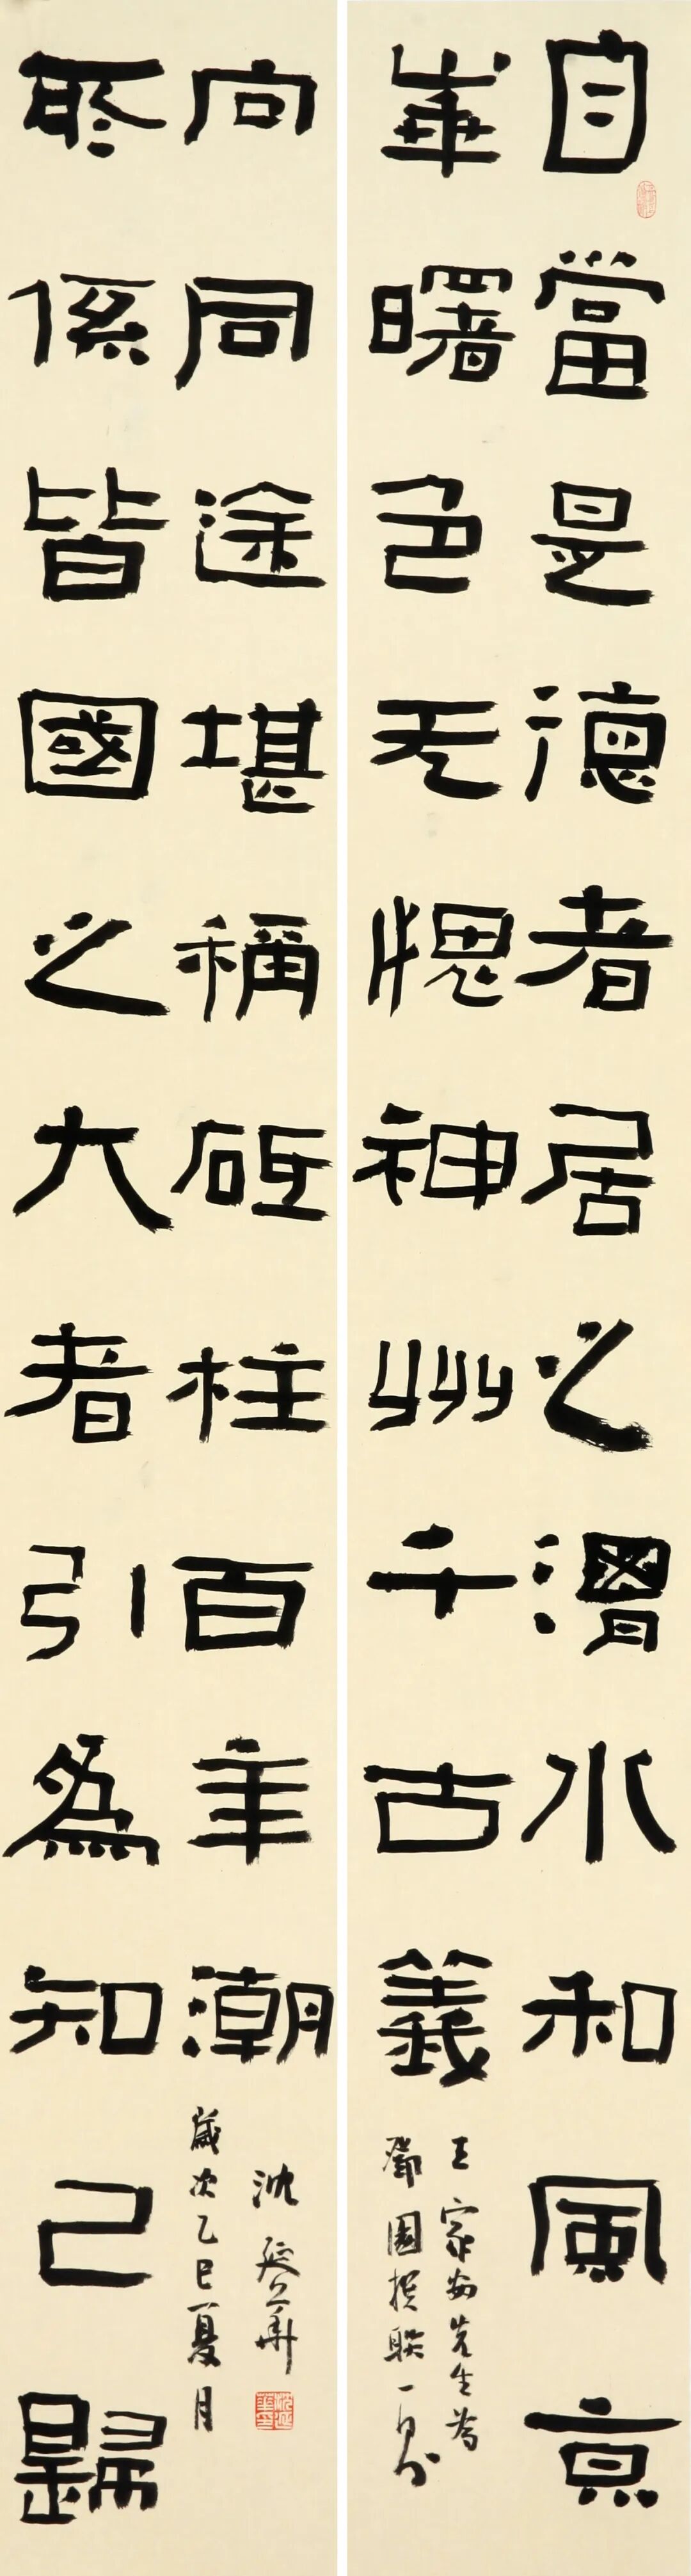 自當是德者居之渭水和風京
華曙色无愧神州千古義
王家安先生為
鄧園撰聯一
所係皆國之大者引為知己歸
向同途堪稱砥柱百年潮
沈延華
歲次乙巳夏月